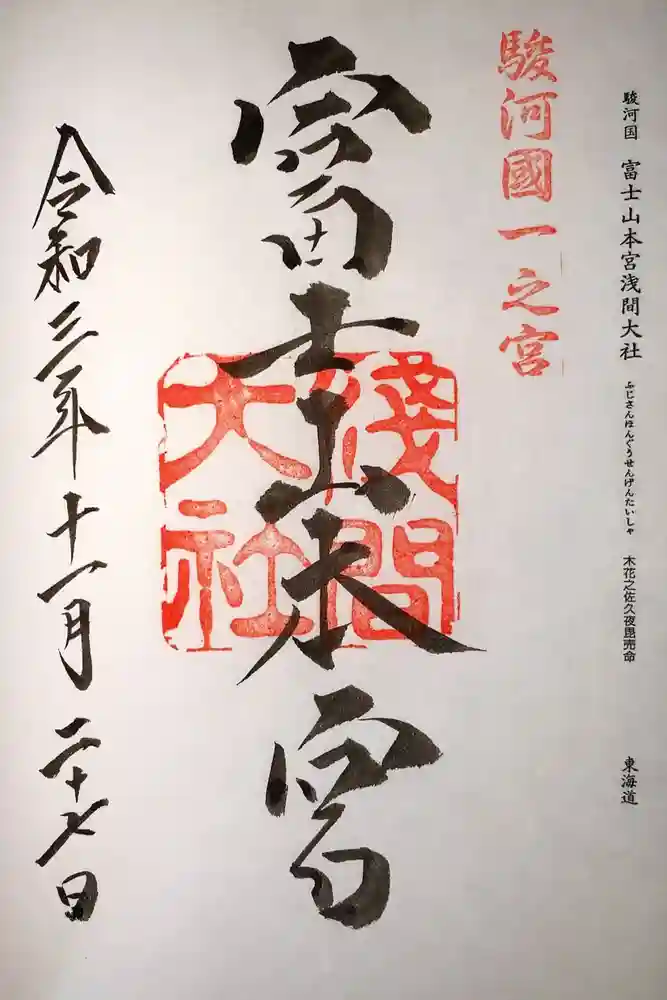 駿河国 富士山本宮浅間大社 ふじさんほんぐうせんげんたいしゃ 木花之佐久夜毘売命 東海道
駿河國一之宮
富士山本宮
淺間
大社
令和三年十一月二十七日